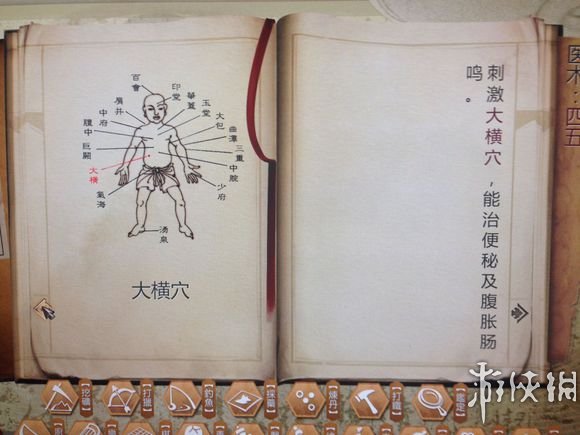 百會
印堂
華蓋
玉堂
大包
三重
中脘
少府
肩井
中府
膻中
巨闕
大橫
氣海
湧泉
大横穴
医术：四五
刺激大横穴，能治便秘及腹胀肠
鸣。
【打獵】
【釣魚】
【採藥】
【煉丹】
【打鐵】
【鑑定】
游侠网